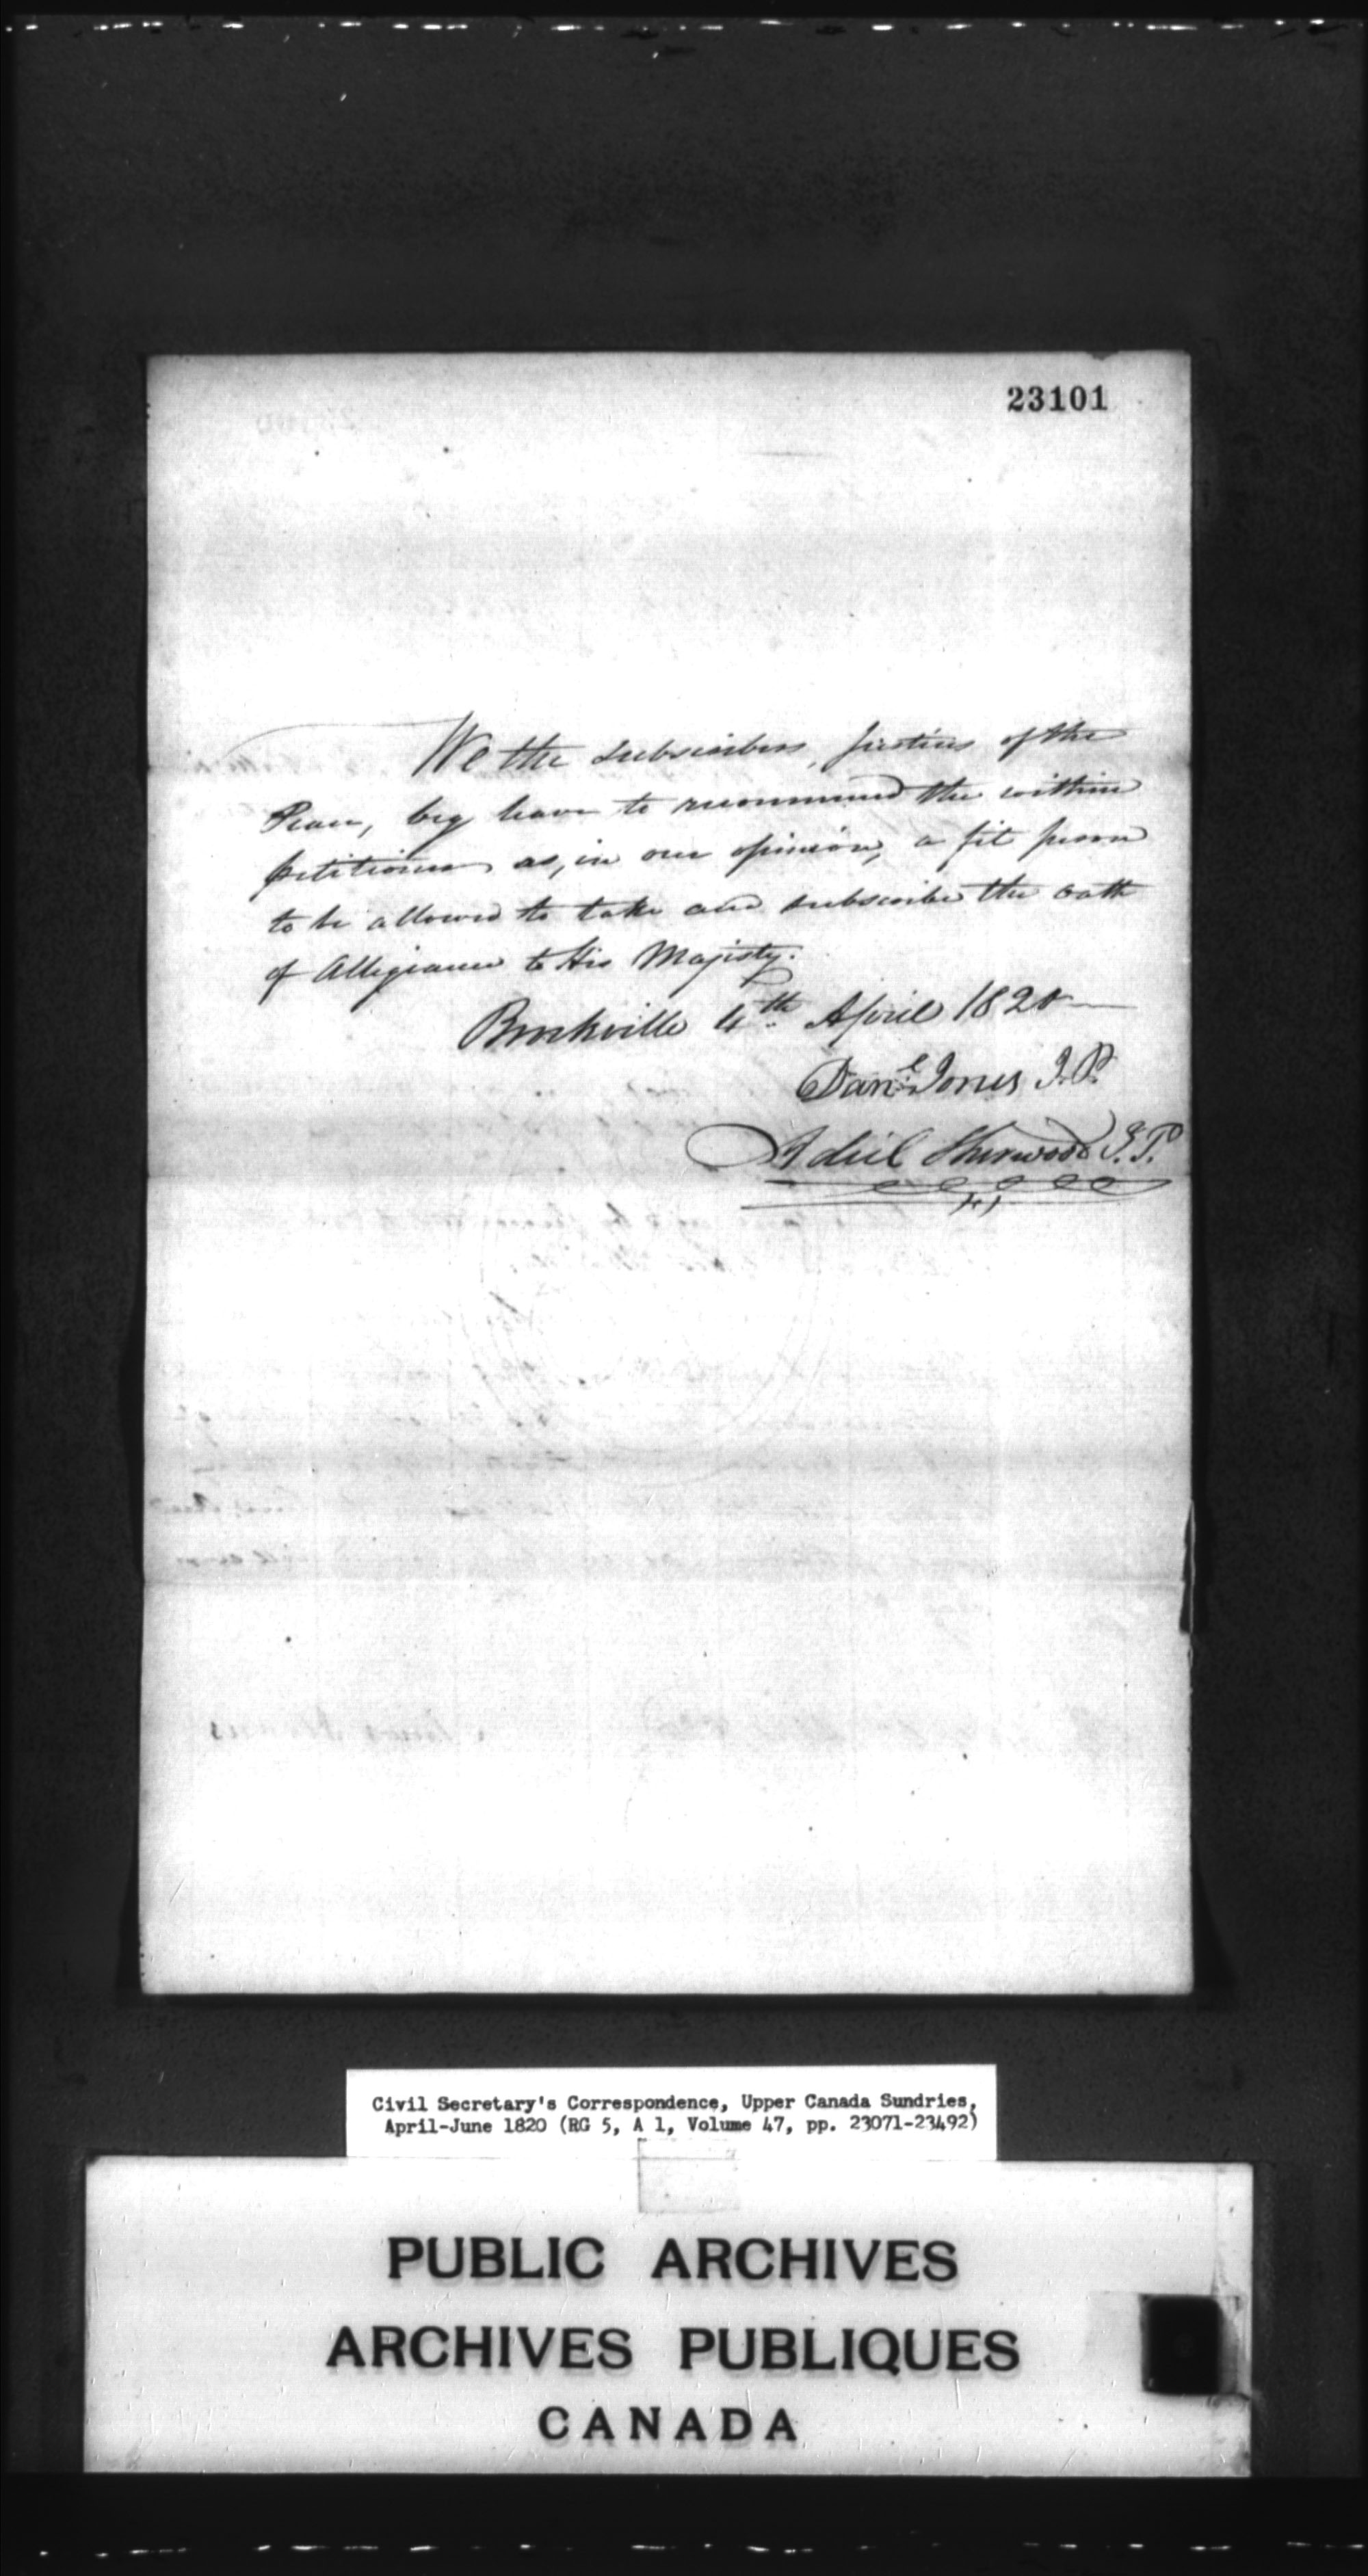 23101
We the subscribers, Justices of the
Peace, beg leave to recommend the within
petitioner as, in our opinion, a fit person
to be allowed to take and subscribe the oath
of Allegiance to His Majesty.
Brockville 4th April 1820
Danl Jones J.P.
Adiel Sherwood J.P.
Civil Secretary's Correspondence, Upper Canada Sundries,
April-June 1820 (RG 5, A 1, Volume 47, pp. 23071-23492)
PUBLIC ARCHIVES
ARCHIVES PUBLIQUES
CANADA